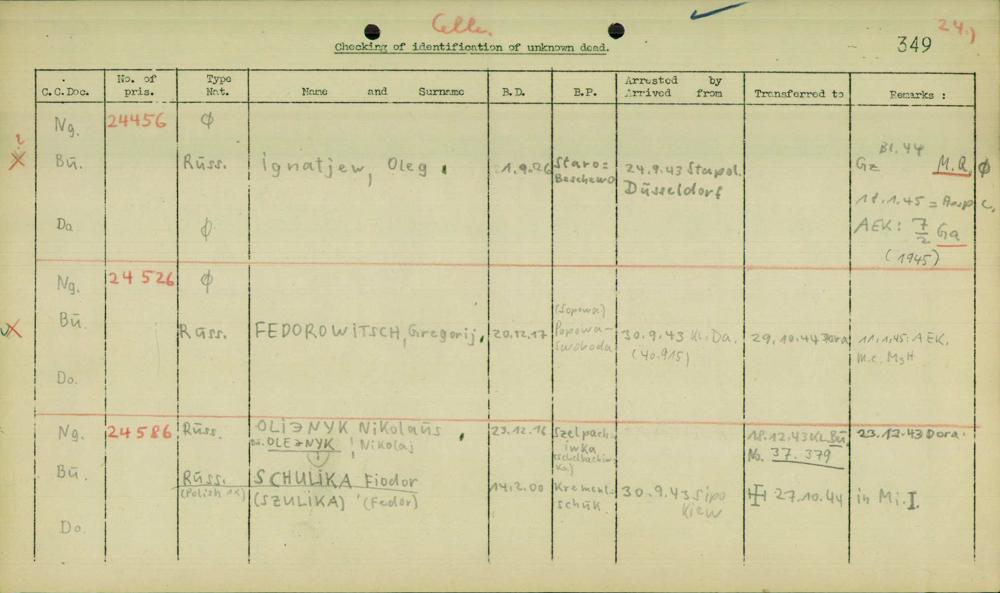 Celle.
24.)
349
Checking of identification of unknown dead.
C.C.Doc. No. of pris. Type Nat. Name and Surname B.D. B.P. Arrested by Arrived from Transferred to Remarks :
Ng. 24456 ϕ
?
X Bü. Russ. Ignatjew, Oleg. 1.9.26 Staro= Beschewo 24.9.43 Stapol. Düsseldorf Gz M.Q. ϕ
Da ϕ AEK: 7/2 Ga
(1945)
Ng. 24526 ϕ
X Bü. Russ. FEDOROWITSCH, Gregorij. 20.12.17 (Sopowa) Popowa-Swoboda 30.9.43 KL. Da. (40.915) 29.10.44 Dora 11.1.45: AEK.
Do.
Ng. 24586 Russ. OLIЭNYK Nikolaus 23.12.16 Szelpach-iwka 18.12.43 KL. Bü No. 37.379 23.12.43 Dora.
Bü. OLEЭNYK, Nikolaj
Bü. Russ. SCHULIKA Fiodor 14.2.00 Krement-schuk. 30.9.43 Sipo Kiew 27.10.44 in Mi. I.
(SZULIKA) (Fedor)
Do.